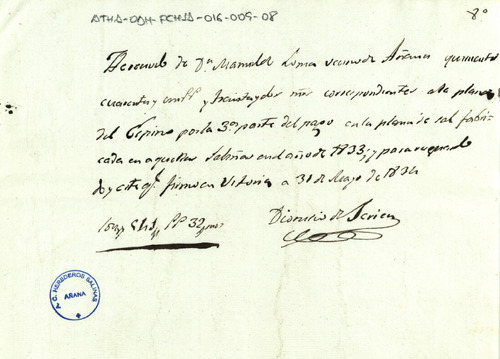 ATHA-DAH-FCHSA-016-009-08
8º
de Dª Manuela Loma vecino de Añana quinientos
cuarenta y un rr y treinta y dos mrs correspondientes a la plana
del Espino por la 3ª parte del pago en la plana de sal fabri
cada en aquellas Salinas en el año de 1833, y para resguardo
doy este qe firmo en Vitoria a 31 de Mayo de 1834
Son 541 rr 32 mrs
Dionisio de
C. HEREDEROS SALINAS
AÑANA